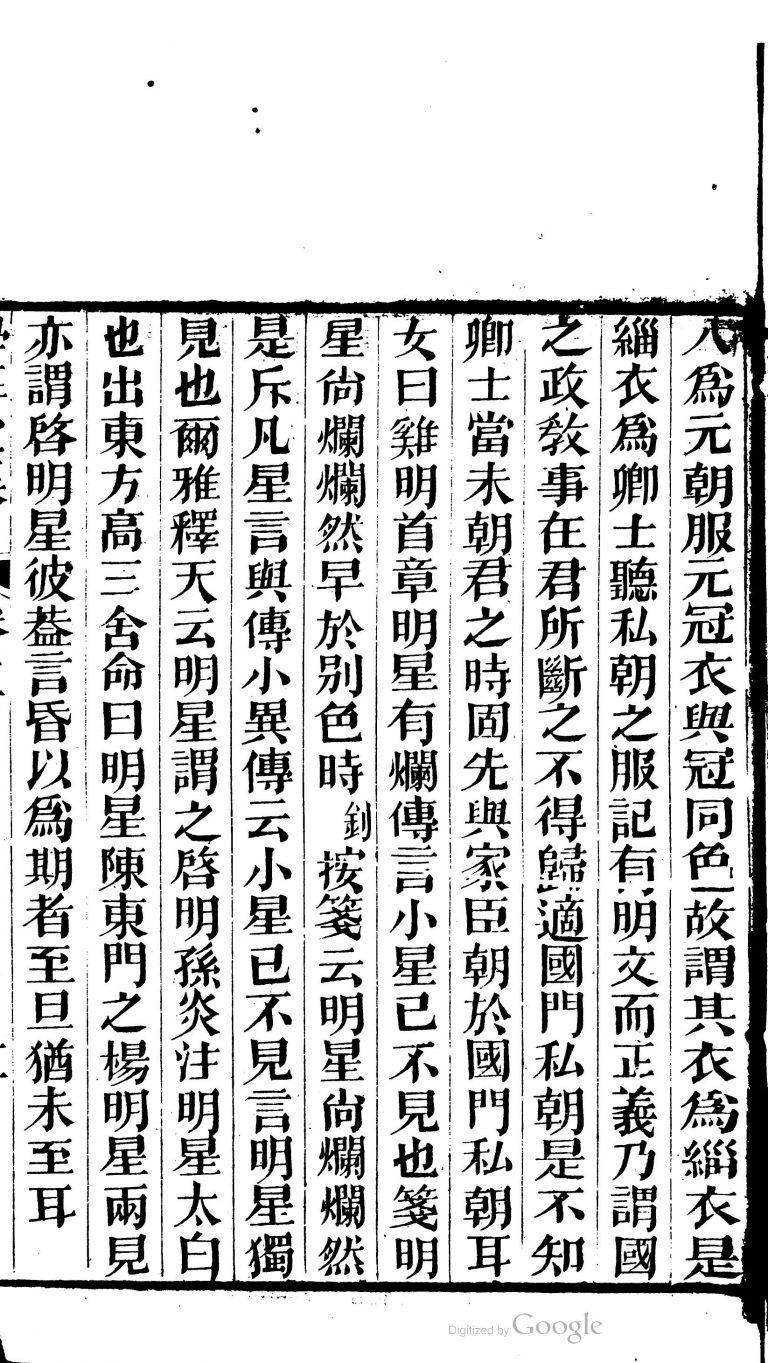 入為元朝服元冠衣與冠同色故謂其衣為緇衣是
緇衣為卿士聽私朝之服記有明文而正義乃謂國
之政教事在君所斷之不得歸適國門私朝是不知
卿士當未朝君之時固先與家臣朝於國門私朝耳
女曰雞明首章明星有爛傳言小星已不見也箋明
星尚爛爛然早於別色時釗按箋云明星尚爛爛然
是斥凡星言與傳小異傳云小星已不見言明星獨
見也爾雅釋天云明星謂之啓明孫炎注明星太白
也出東方高三舍命曰明星陳東門之楊明星兩見
亦謂啓明星彼葢言昏以為期者至旦猶未至耳
Digitized by Google